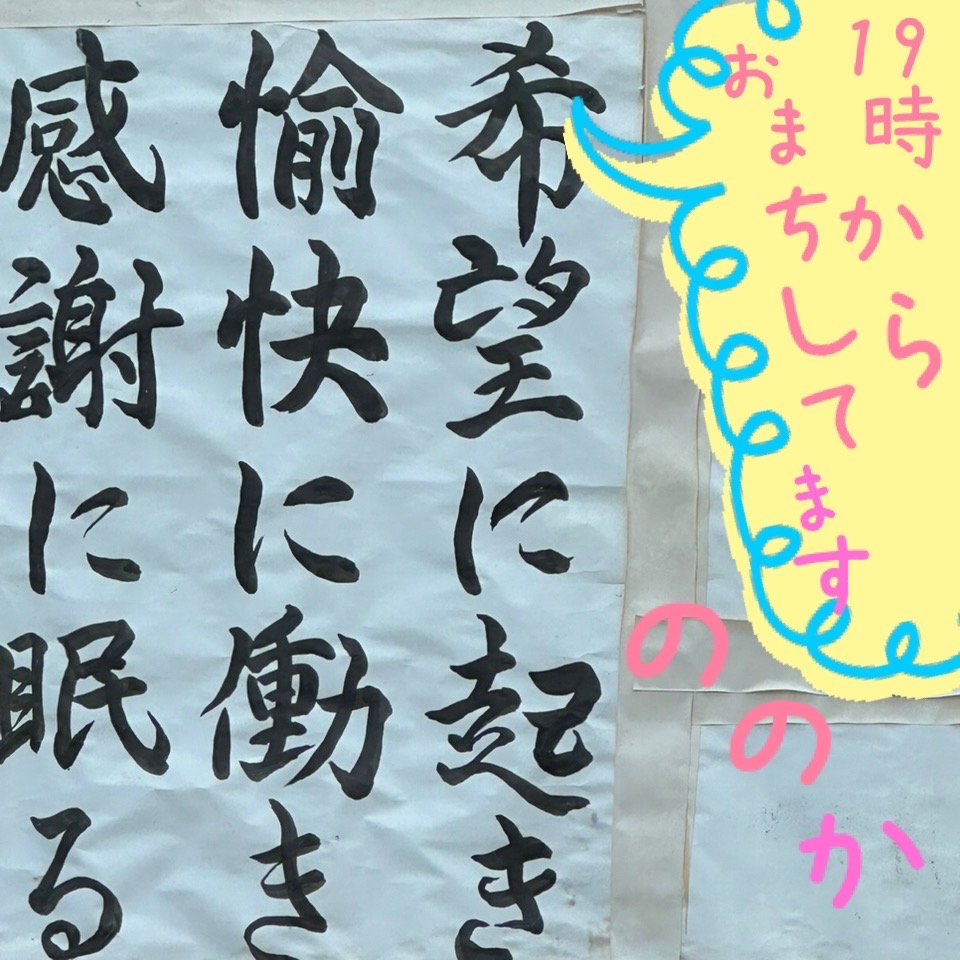 19時から
おまちしてます
ののか
希望に起き
愉快に働き
感謝に眠る